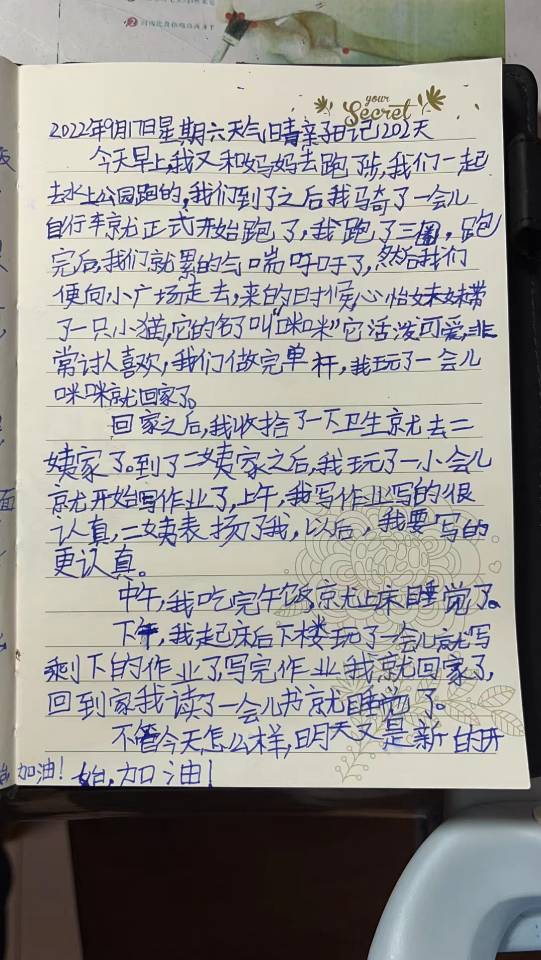 your
Secret
2022年9月17日星期六天气晴亲子日记1202天
今天早上,我又和妈妈去跑了步,我们一起
去水上公园跑的,我们到了之后我骑了一会儿
自行车就正式开始跑了,我跑了三圈,跑
完后,我们就累的气喘吁吁了,然后我们
便向小广场走去,来的时候心怡妹妹带
了一只小猫,它的名字叫“咪咪”它活泼可爱,非
常讨人喜欢,我们做完单杆,我玩了一会儿
咪咪就回家了。
回家之后,我收拾了一下卫生就去二
姨家了。到了二姨家之后,我玩了一小会儿
就开始写作业了,上午,我写作业写的很
认真,二姨表扬了我,以后,我要写的
更认真。
中午,我吃完午饭,就上床睡觉了。
下午,我起床后下楼玩了一会儿就写
剩下的作业了,写完作业,我就回家了,
回到家我读了一会儿书就睡觉了。
不管今天怎么样,明天又是新的开
始,加油!
加油!